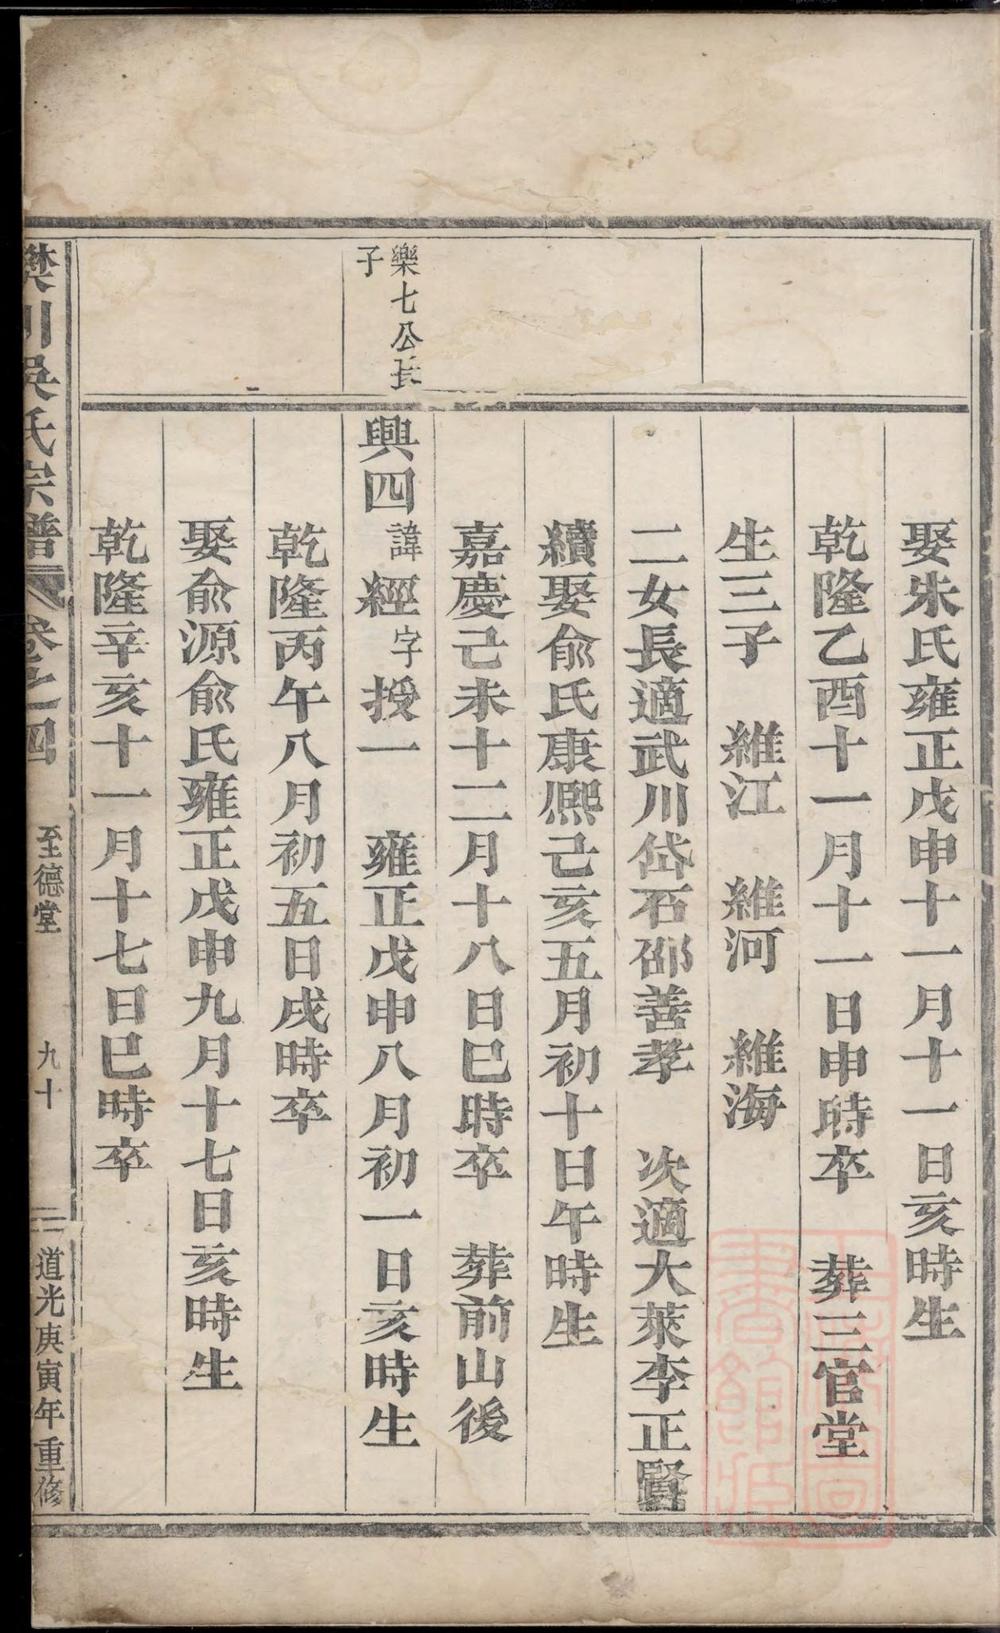 娶朱氏雍正戊申十一月十一日亥時生
乾隆乙酉十一月十一日申時卒 葬三官堂
生三子 維江 維河 維海
二女長適武川岱石邵善孝 次適大萊李正賢
續娶俞氏康熙己亥五月初十日午時生
嘉慶己未十二月十八日巳時卒 葬前山後
樂七公長
子
興四諱經字授一 雍正戊申八月初一日亥時生
乾隆丙午八月初五日戌時卒
娶俞源俞氏雍正戊申九月十七日亥時生
乾隆辛亥十一月十七日巳時卒
樊川吳氏宗譜 卷之四 至德堂 九十 道光庚寅年重修